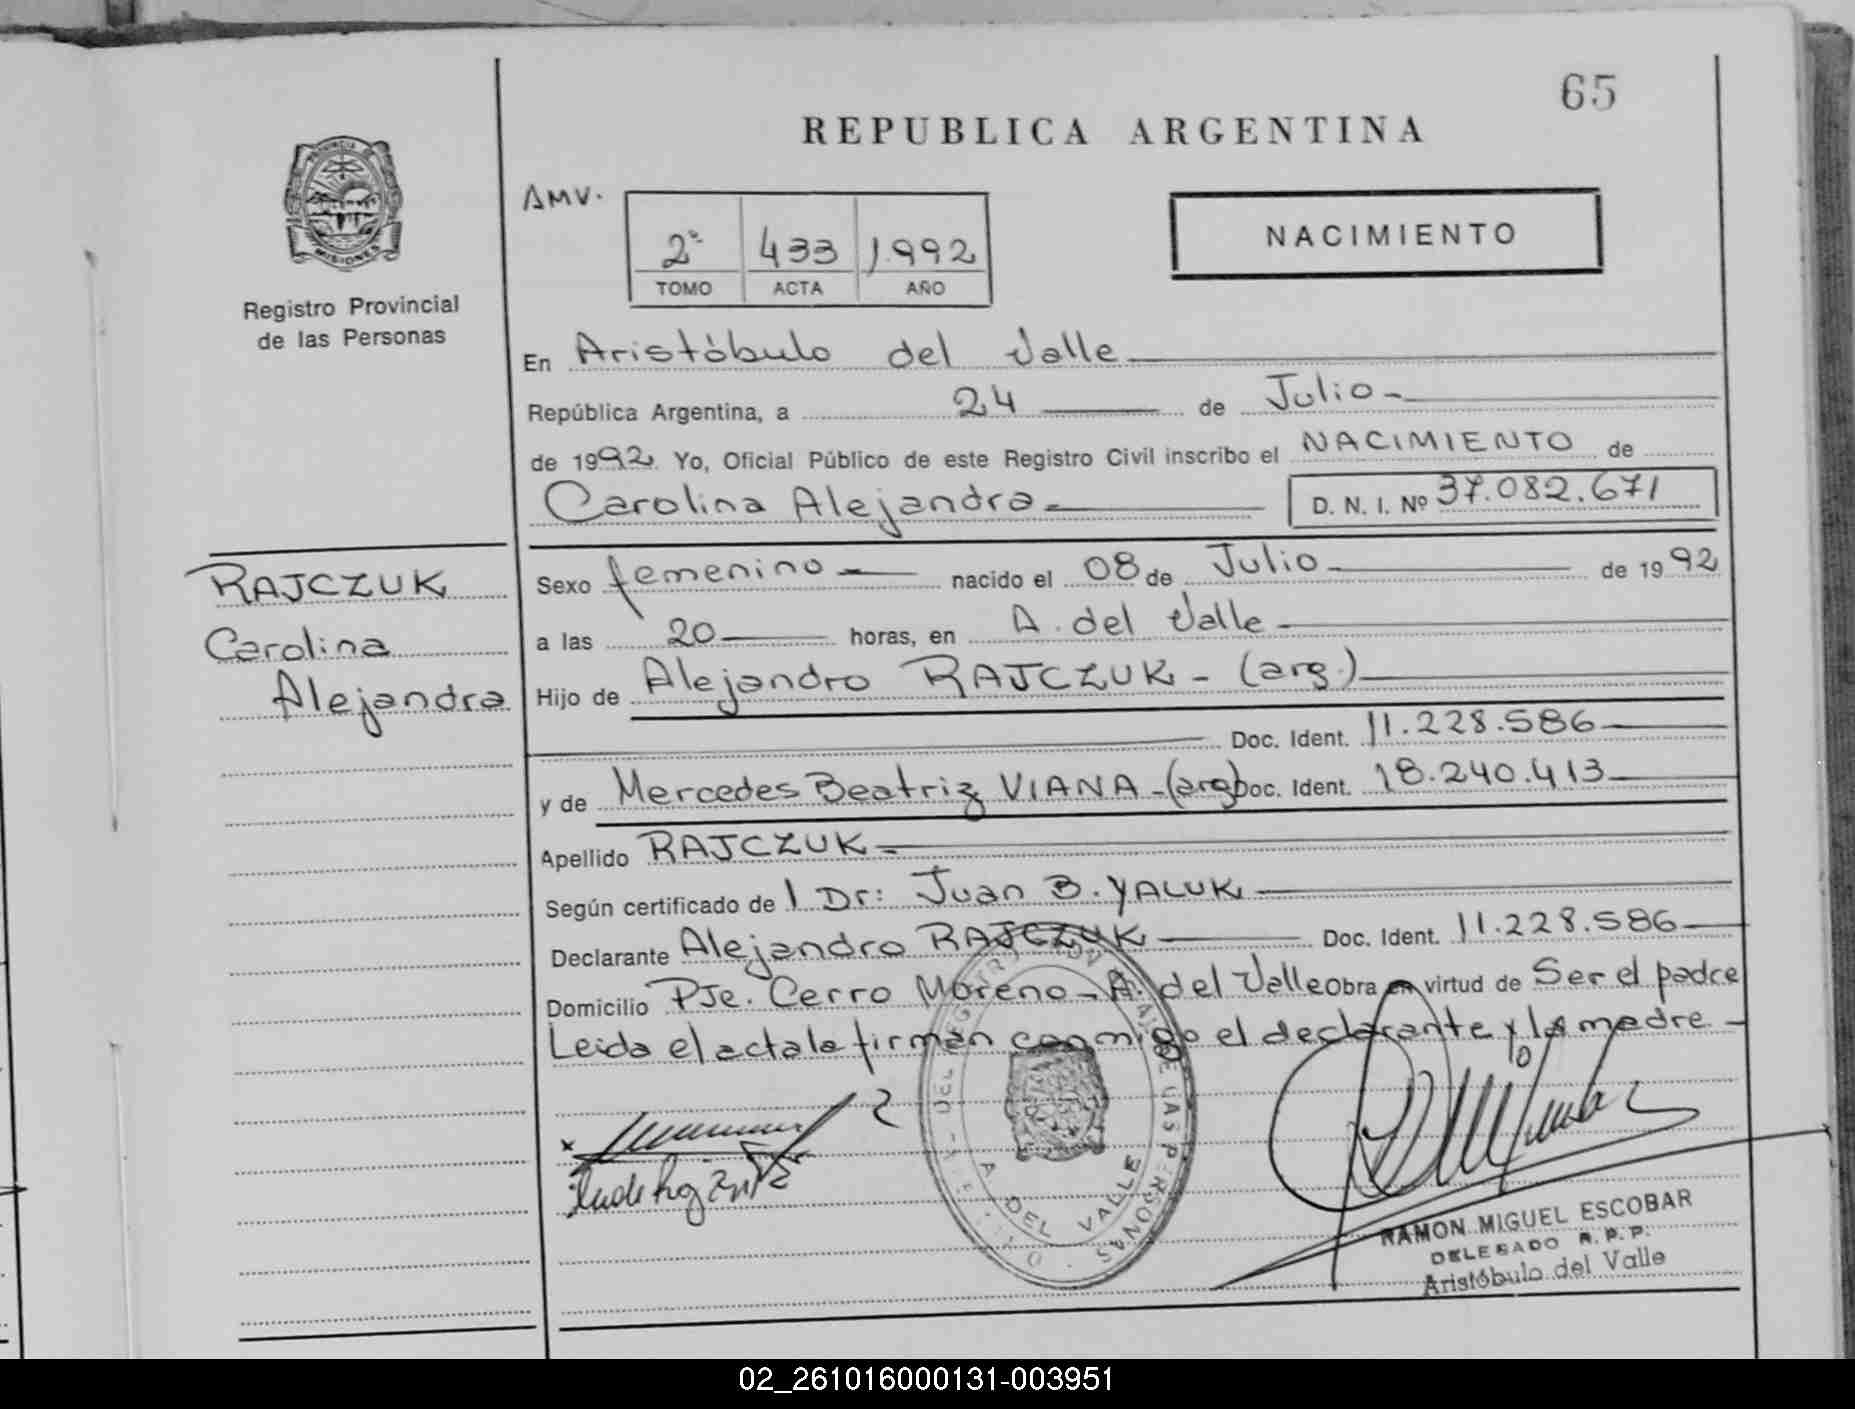 65
REPUBLICA ARGENTINA
PROVINCIA DE
MISIONES
Registro Provincial
de las Personas
AMV.
2º 433 1.992
TOMO ACTA AÑO
NACIMIENTO
En Aristóbulo del Valle
República Argentina, a 24 de Julio
de 1992. Yo, Oficial Público de este Registro Civil inscribo el NACIMIENTO de
Carolina Alejandra D. N. I. Nº 37.082.671
RAJCZUK
Carolina
Alejandra
Sexo femenino nacido el 08 de Julio de 1992
a las 20 horas, en A. del Valle
Hijo de Alejandro RAJCZUK - (arg.)
Doc. Ident. 11.228.586
y de Mercedes Beatriz VIANA - (arg) Doc. Ident. 18.240.413
Apellido RAJCZUK
Según certificado de l Dr: Juan B. YALUK
Declarante Alejandro RAJCZUK Doc. Ident. 11.228.586
Domicilio Pje. Cerro Moreno - A. del Valle Obra en virtud de Ser el padre
Leida el acta la firman conmigo el declarante y la madre
A DEL VALLE
RAMON MIGUEL ESCOBAR
DELEGADO R. P. P.
Aristóbulo del Valle
02_261016000131-003951